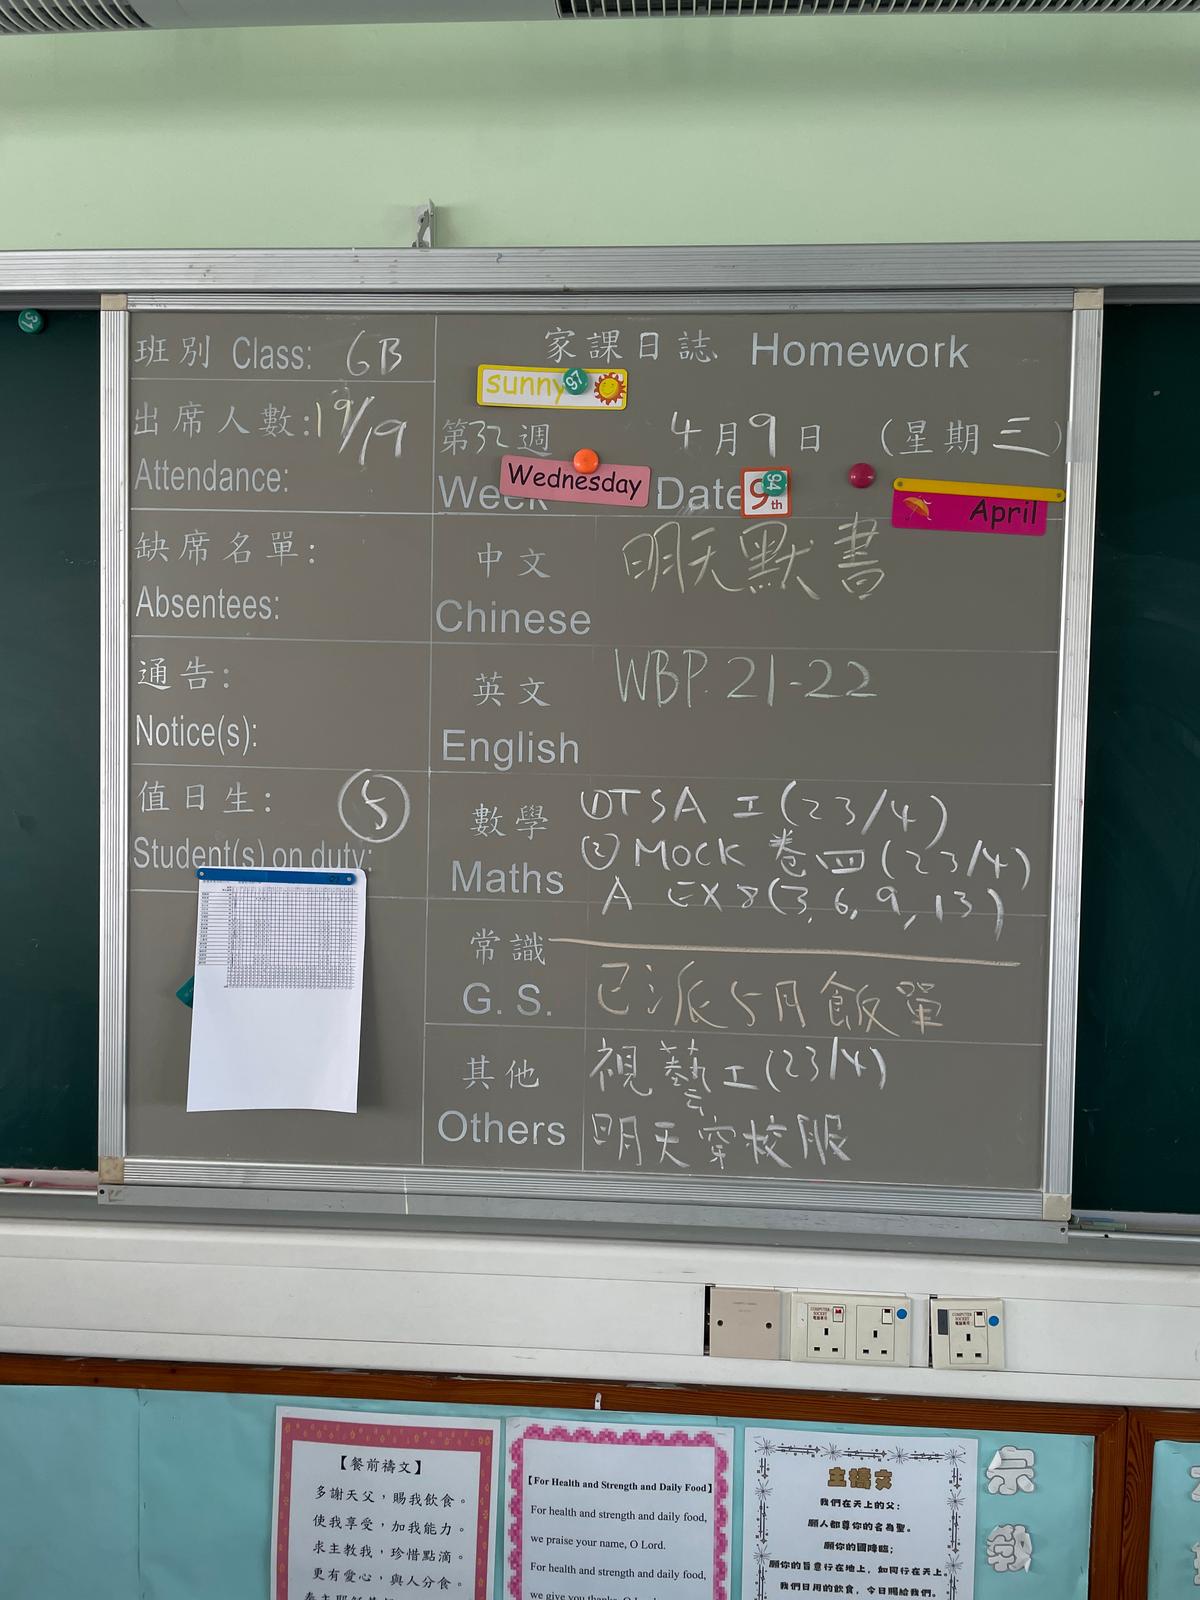 班別 Class: 6B
出席人數: 19/19
Attendance:
缺席名單:
Absentees:
通告:
Notice(s):
值日生: 5
Student(s) on duty:
家課日誌 Homework
sunny 97
第32週 4月9日 (星期三)
Week Wednesday Date 9th 94 April
中文 明天默書
Chinese
英文 WBP. 21-22
English
數學 ①TSA 工(23/4)
Maths ②MOCK 卷四(23/4)
A EX 8(3, 6, 9, 13)
常識
G. S. 已派5月飯單
其他 視藝工(23/4)
Others 明天穿校服
31
COMPUTER SOCKET
COMPUTER SOCKET
【餐前禱文】
多謝天父，賜我飲食。
使我享受，加我能力。
求主教我，珍惜點滴。
更有愛心，與人分食。
【For Health and Strength and Daily Food】
For health and strength and daily food,
we praise your name, O Lord.
For health and strength and daily food,
we give you thanks, O
主禱文
我們在天上的父：
願人都尊你的名為聖。
願你的國降臨；
願你的旨意行在地上，如同行在天上。
我們日用的飲食，今日賜給我們。
宗
教